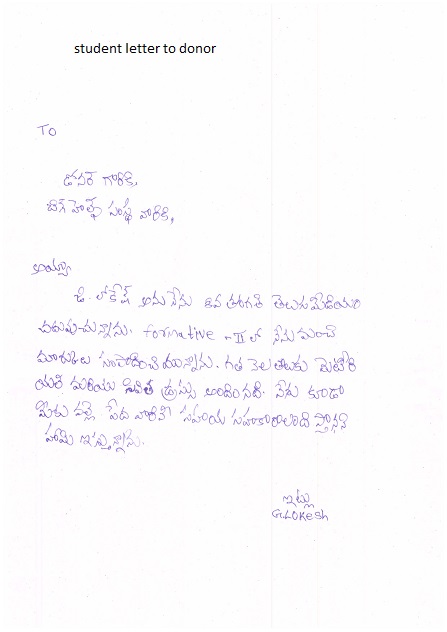 student letter to donor
To
డోనర్ గారికి,
బిగ్ హెల్ప్ సంస్థ వారికి,
అయ్యా
జి. లోకేష్ అను నేను 8వ తరగతి తెలుగు మీడియం
చదువుచున్నాను. formative - II లో నేను మంచి
మార్కులు సంపాదించి యున్నాను. గత నెల మెటీరి
యల్ మరియు డ్రస్సు అందినది. నేను కూడా
మీకు వల్లె పేద వారికి సహాయ సహకారాలందిస్తానని
హామి ఇస్తున్నాను.
ఇట్లు
G.Lokesh